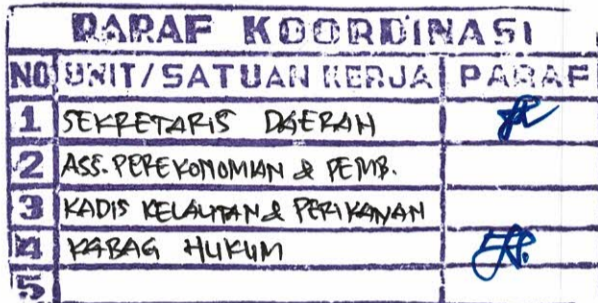 PARAF KOORDINASI
NO UNIT/SATUAN KERJA PARAF
1 SEKRETARIS DAERAH
2 ASS. PEREKONOMIAN & PEMB.
3 KADIS KELAUTAN & PERIKANAN
4 KABAG HUKUM
5